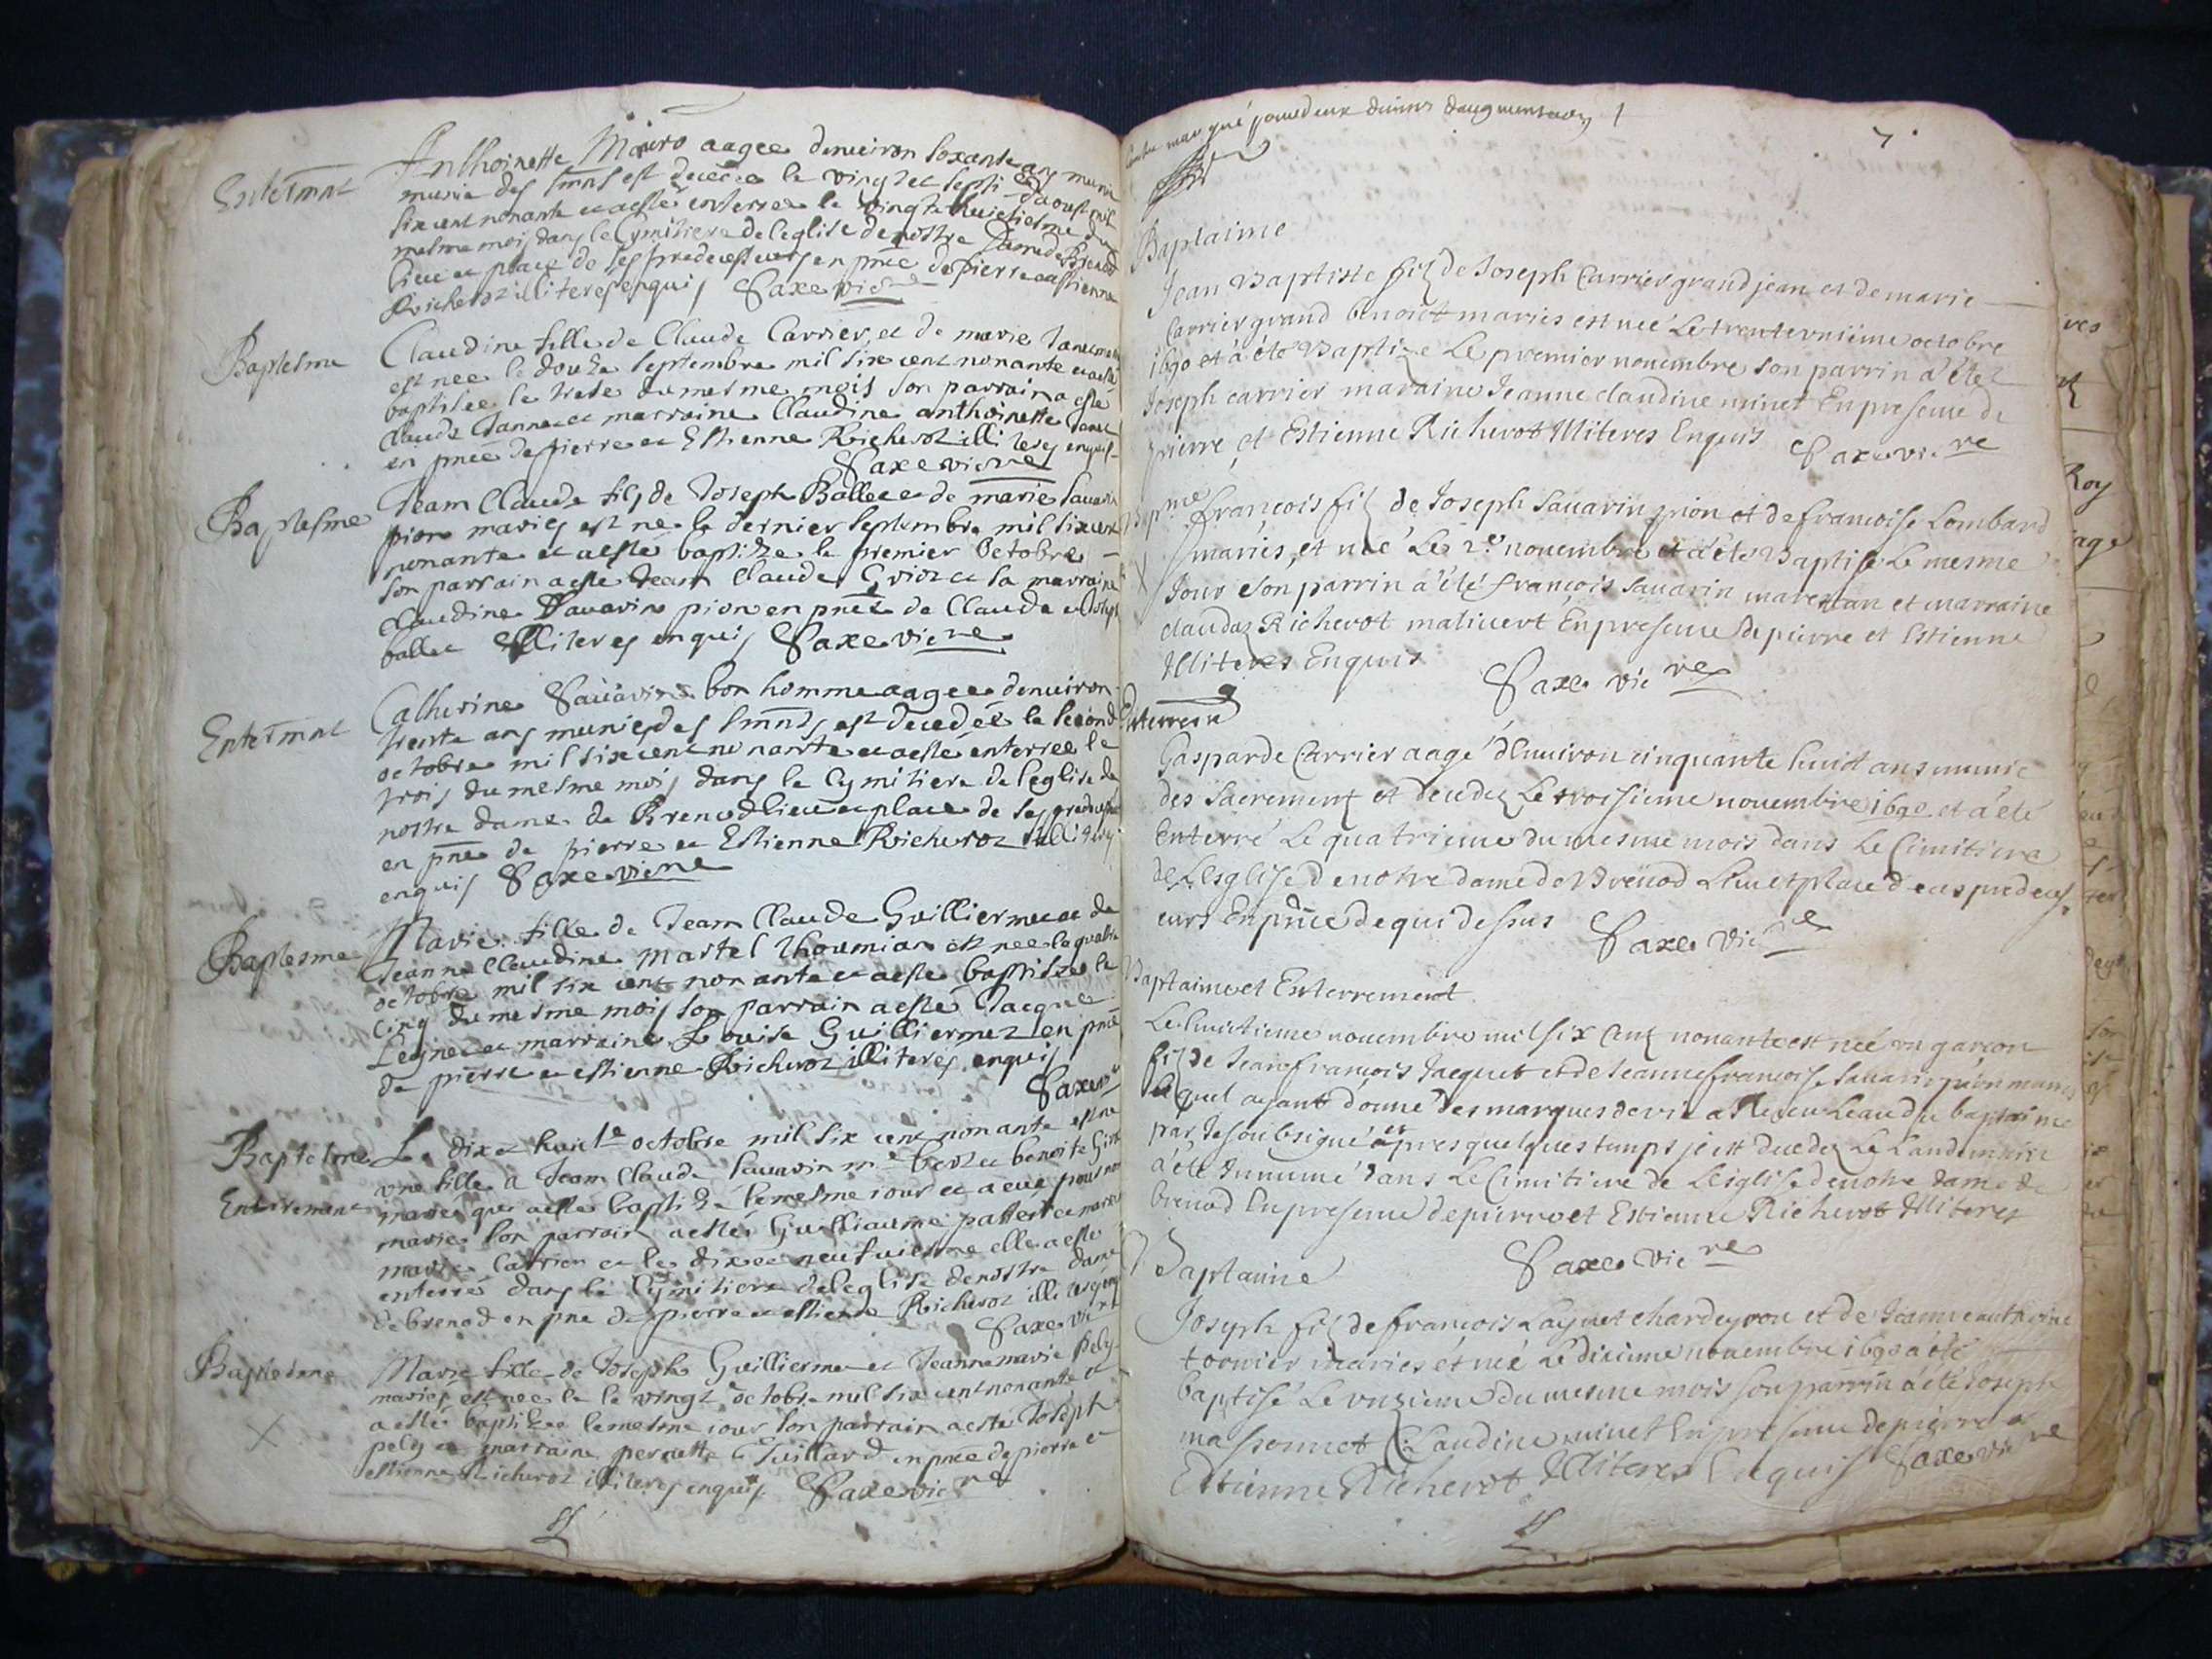 Entermnt
Anthoinette aagee denuiron soxante ans
munie des smnts est decedee le vingt et sept daoust mil
six cent nonante et a esté enterree le vingt huictiesme du
mesme mois dans le Cymitiere de leglise de nostre Dame de Brenod
lieu et place de ses predecesseurs en pnce de pierre et estienne
Richerot illiteres enquis Saxe vicre
Baptesme
Claudine fille de Claude Carrier et de marie
est nee le douze septembre mil six cent nonante et a esté
baptisee le treze du mesme mois son parrain a esté
Claude et marraine Claudine anthoinette
en pnce de pierre et Estienne Richerot illiteres enquis
Saxe vicre
Baptesme
Jean Claude fils de Joseph Ballet et de marie sauarin
pion mariés est né le dernier septembre mil six cent
nonante et a esté baptizé le premier octobre
son parrain a esté Jean Claude et sa marraine
Claudine Sauarin pion en pnce de Claude et Joseph
ballet Illiteres enquis Saxe vicre
Entermnt
Catherine Sauarin bon homme aagee denuiron
trente ans munie des smnts est decedée le second
octobre mil six cent nonante et a esté enterree le
trois du mesme mois dans le Cymitiere de leglise de
nostre dame de Brenod lieu et place de ses
en pnce de pierre et Estienne Richerot illiteres
enquis Saxe vicre
Baptesme
Marie fille de Jean Claude Guilliermet et de
Jeanne Claudine Martel est nee le quatre
octobre mil six cent nonante et a esté baptisée le
cinq du mesme mois son parrain a esté Jacque
et marraine Louise Guilliermet en pnce
de pierre et estienne Richerot illiteres enquis
Saxe vicre
Baptesme
Enterement
Le dix et huict octobre mil six cent nonante est ne
une fille a Jean Claude sauarin et benoite
mariés qui a esté baptizée le mesme iour et a eue pour nom
marie son parrain a esté Guilliaume et marraine
marie Carrier et le dix et neufuiesme elle a esté
enterré dans le Cymitiere de leglise de nostre dame
de brenod en pnce de pierre et estienne Richerot illiteres enquis
Saxe vicre
Baptesme
Marie fille de Joseph Guilliermet et Jeanne marie Pely
mariés est nee le vingt octobre mil six cent nonante et
a esté baptizee le mesme iour son parrain a esté Joseph
pely et marraine pernette Tuillard en pnce de pierre et
estienne Richerot illiteres enquis Saxe vicre
7
marqué pour deux daugmentation
Baptaime
Jean Baptiste fils de Joseph Carrier grand jean et de marie
Carrier grand benoict mariés est neé Le trente octobre
1690 et a été Baptize Le premier nouembre son parrin a été
Joseph carrier maraine Jeanne claudine minet En presence de
pierre et Estienne Richerot Illiteres Enquis Saxe vicre
Bapme
francois fils de Joseph Sauarin pion et de francoise Lombard
mariés, et neé Le 2e nouembre et a été Baptisé Le mesme
Jour son parrin a été françois sauarin et marraine
claudaz Richerot matiuert En presence de pierre et Estienne
Illiteres Enquis Saxe vicre
Gasparde Carrier aagé denuiron cinquante huict ans munie
des Sacrements et decedez Le troisieme nouembre 1690 et a été
Enterré Le quatrieme du mesme mois dans Le Cimitiere
de Lesglise de notre dame de Brenod Lieu et place de ces predeces
eurs En pnce de qui dessus Saxe vicre
Baptaime et Enterrement
Le huictieme nouembre mil six cent nonante est neé un garçon
fils de Jean francois Jacquet et de Jeanne francoise sauarin pion mariés
lequel ayant donné des marques de vie a receu Leau du baptaime
par Je soubsigné et apres quelques temps je est decedez Le Landemain
a été Innumé dans Le Cimitiere de Lesglise de notre dame de
brenod En presence de pierre et Estienne Richerot Illiteres
Saxe vicre
Baptaime
Joseph fils de francois et de Jeanne anthoine
mariés et neé Le dixieme nouembre 1690 a été
baptisé Le onzieme du mesme mois son parrin a été Joseph
massonnet Claudine minet En presence de pierre et
Estienne Richerot Illiteres Enquis Saxe vicre